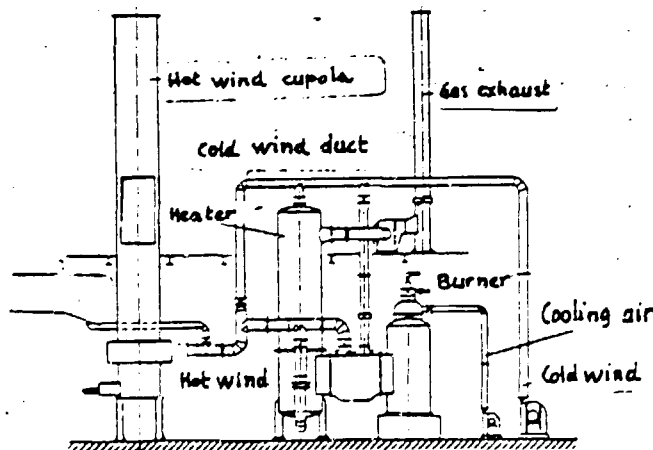 Hot wind cupola
Gas exhaust
Cold wind duct
Heater
Burner
Cooling air
Hot wind
Cold wind